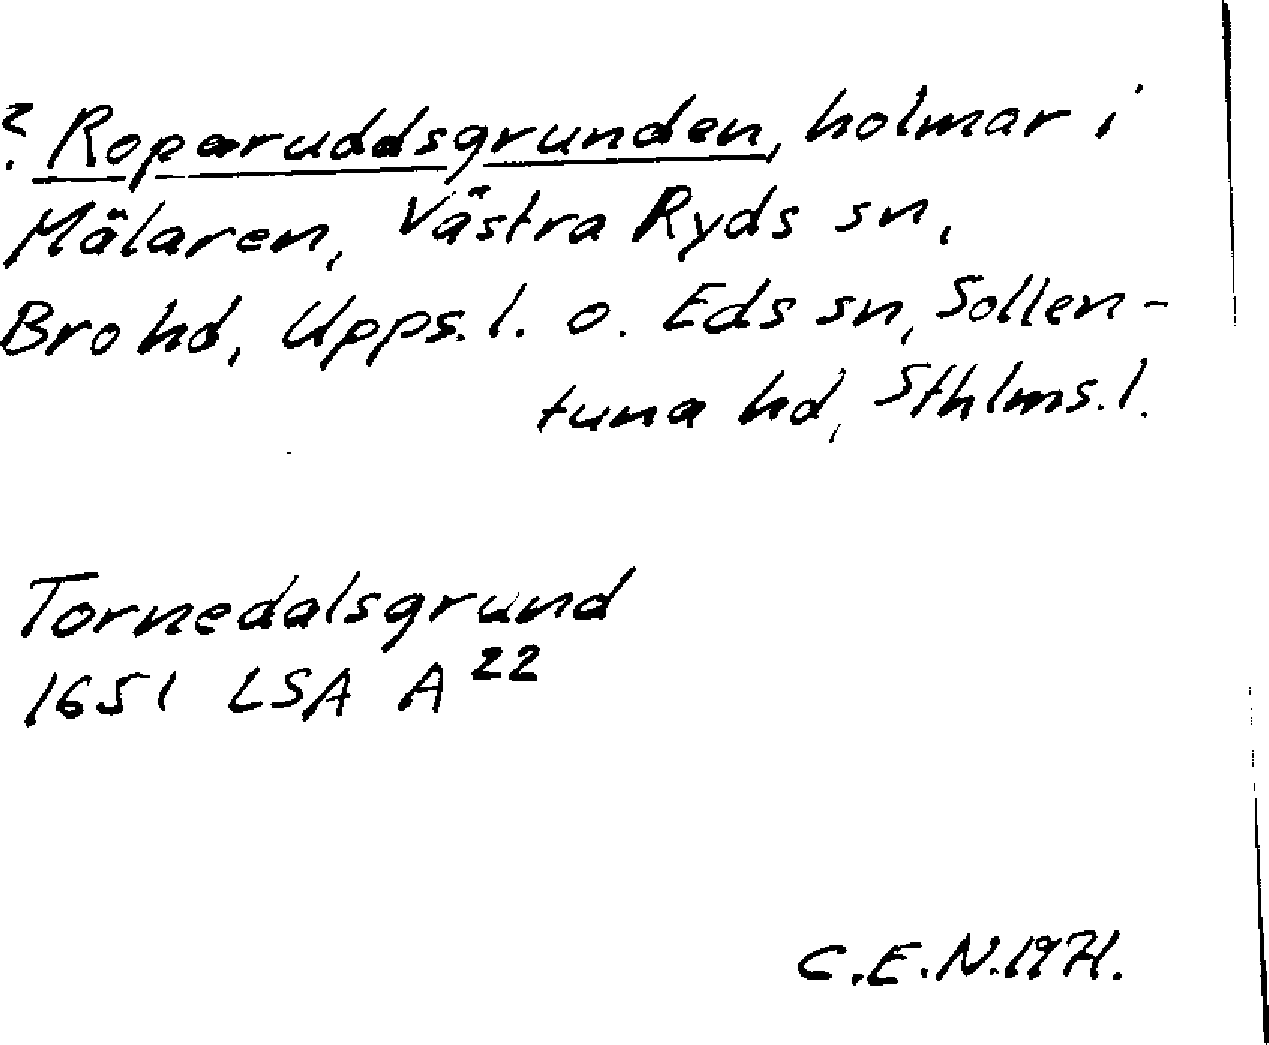 ? Roparuddsgrunden, holmar i
Mälaren, Västra Ryds sn,
Bro hd, Upps. l. o. Eds sn, Sollen-
tuna hd, Sthlms. l.
Tornedalsgrund
1651 LSA A 22
C.E.N. 1971.